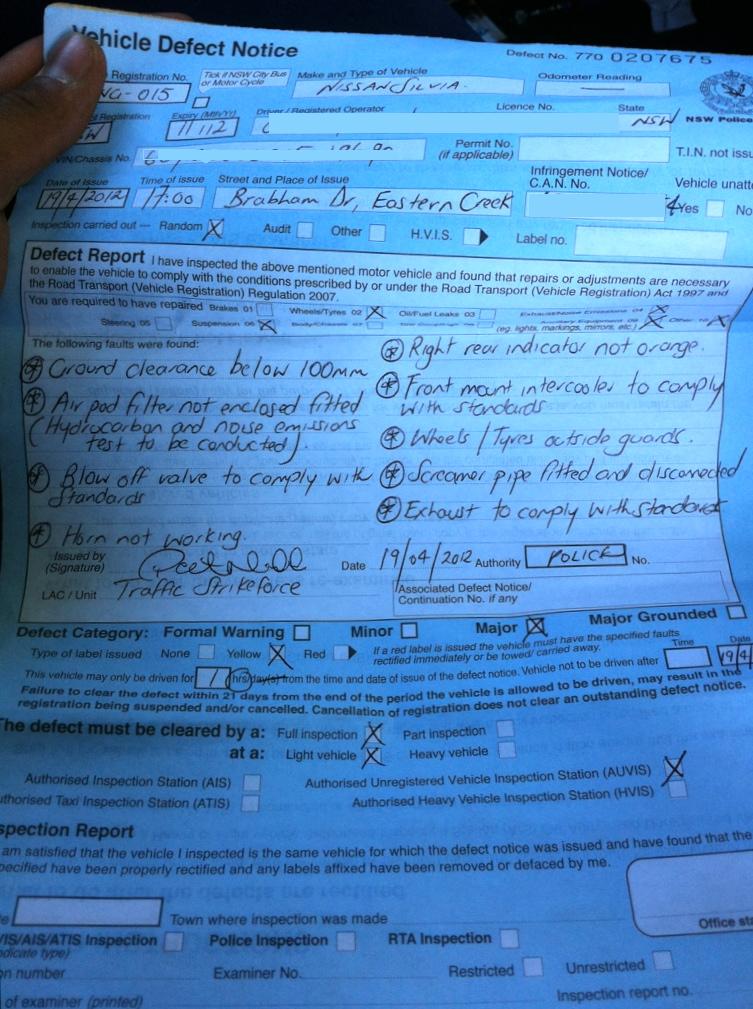 Vehicle Defect Notice
Defect No. 770 0207675
Registration No.
Tick if NSW City Bus
or Motor Cycle
Make and Type of Vehicle
Odometer Reading
NG-015
NISSAN SILVIA.
Registration
Expiry (M/Y/Y)
Driver / Registered Operator
Licence No.
State
NSW Police
11/112
NSW
VIN/Chassis No.
Permit No.
(if applicable)
T.I.N. not issu
Date of Issue
Time of issue
Street and Place of Issue
Infringement Notice/
C.A.N. No.
Vehicle unatt
19/4/2012
17:00
Brabham Dr, Eastern Creek
Yes
No
Inspection carried out — Random X
Audit
Other
H.V.I.S.
Label no.
Defect Report I have inspected the above mentioned motor vehicle and found that repairs or adjustments are necessary
to enable the vehicle to comply with the conditions prescribed by or under the Road Transport (Vehicle Registration) Act 1997 and
the Road Transport (Vehicle Registration) Regulation 2007.
You are required to have repaired Brakes 01
Wheels/Tyres 02 X
Oil/Fuel Leaks 03
Exhaust/Noise Emissions 04 X
Steering 05
Suspension 06 X
(eg. lights, markings, mirrors, etc.) X
The following faults were found:
* Ground clearance below 100mm
* Air pod filter not enclosed fitted
(Hydrocarbon and noise emissions
test to be conducted).
* Blow off valve to comply with
Standards
* Horn not working.
* Right rear indicator not orange.
* Front mount intercooler to comply
with standards
* Wheels / Tyres outside guards.
* Screamer pipe fitted and disconected
* Exhaust to comply with standards
Issued by
(Signature)
Date 19/04/2012 Authority POLICE No.
LAC / Unit Traffic Strikeforce
Associated Defect Notice/
Continuation No. if any
Defect Category: Formal Warning
Minor
Major X
Major Grounded
Type of label issued None
Yellow X
Red
If a red label is issued the vehicle must have the specified faults
rectified immediately or be towed/ carried away.
Vehicle not to be driven after
Time
Date
19/4/
This vehicle may only be driven for 1 hrs/day(s) from the time and date of issue of the defect notice.
Failure to clear the defect within 21 days from the end of the period the vehicle is allowed to be driven, may result in the
registration being suspended and/or cancelled. Cancellation of registration does not clear an outstanding defect notice.
The defect must be cleared by a: Full inspection X
Part inspection
at a: Light vehicle X
Heavy vehicle
Authorised Inspection Station (AIS)
Authorised Unregistered Vehicle Inspection Station (AUVIS) X
uthorised Taxi Inspection Station (ATIS)
Authorised Heavy Vehicle Inspection Station (HVIS)
spection Report
am satisfied that the vehicle I inspected is the same vehicle for which the defect notice was issued and have found that the
pecified have been properly rectified and any labels affixed have been removed or defaced by me.
Town where inspection was made
Office sta
VIS/AIS/ATIS Inspection
Police Inspection
RTA Inspection
ndicate type)
on number
Examiner No.
Restricted
Unrestricted
of examiner (printed)
Inspection report no.